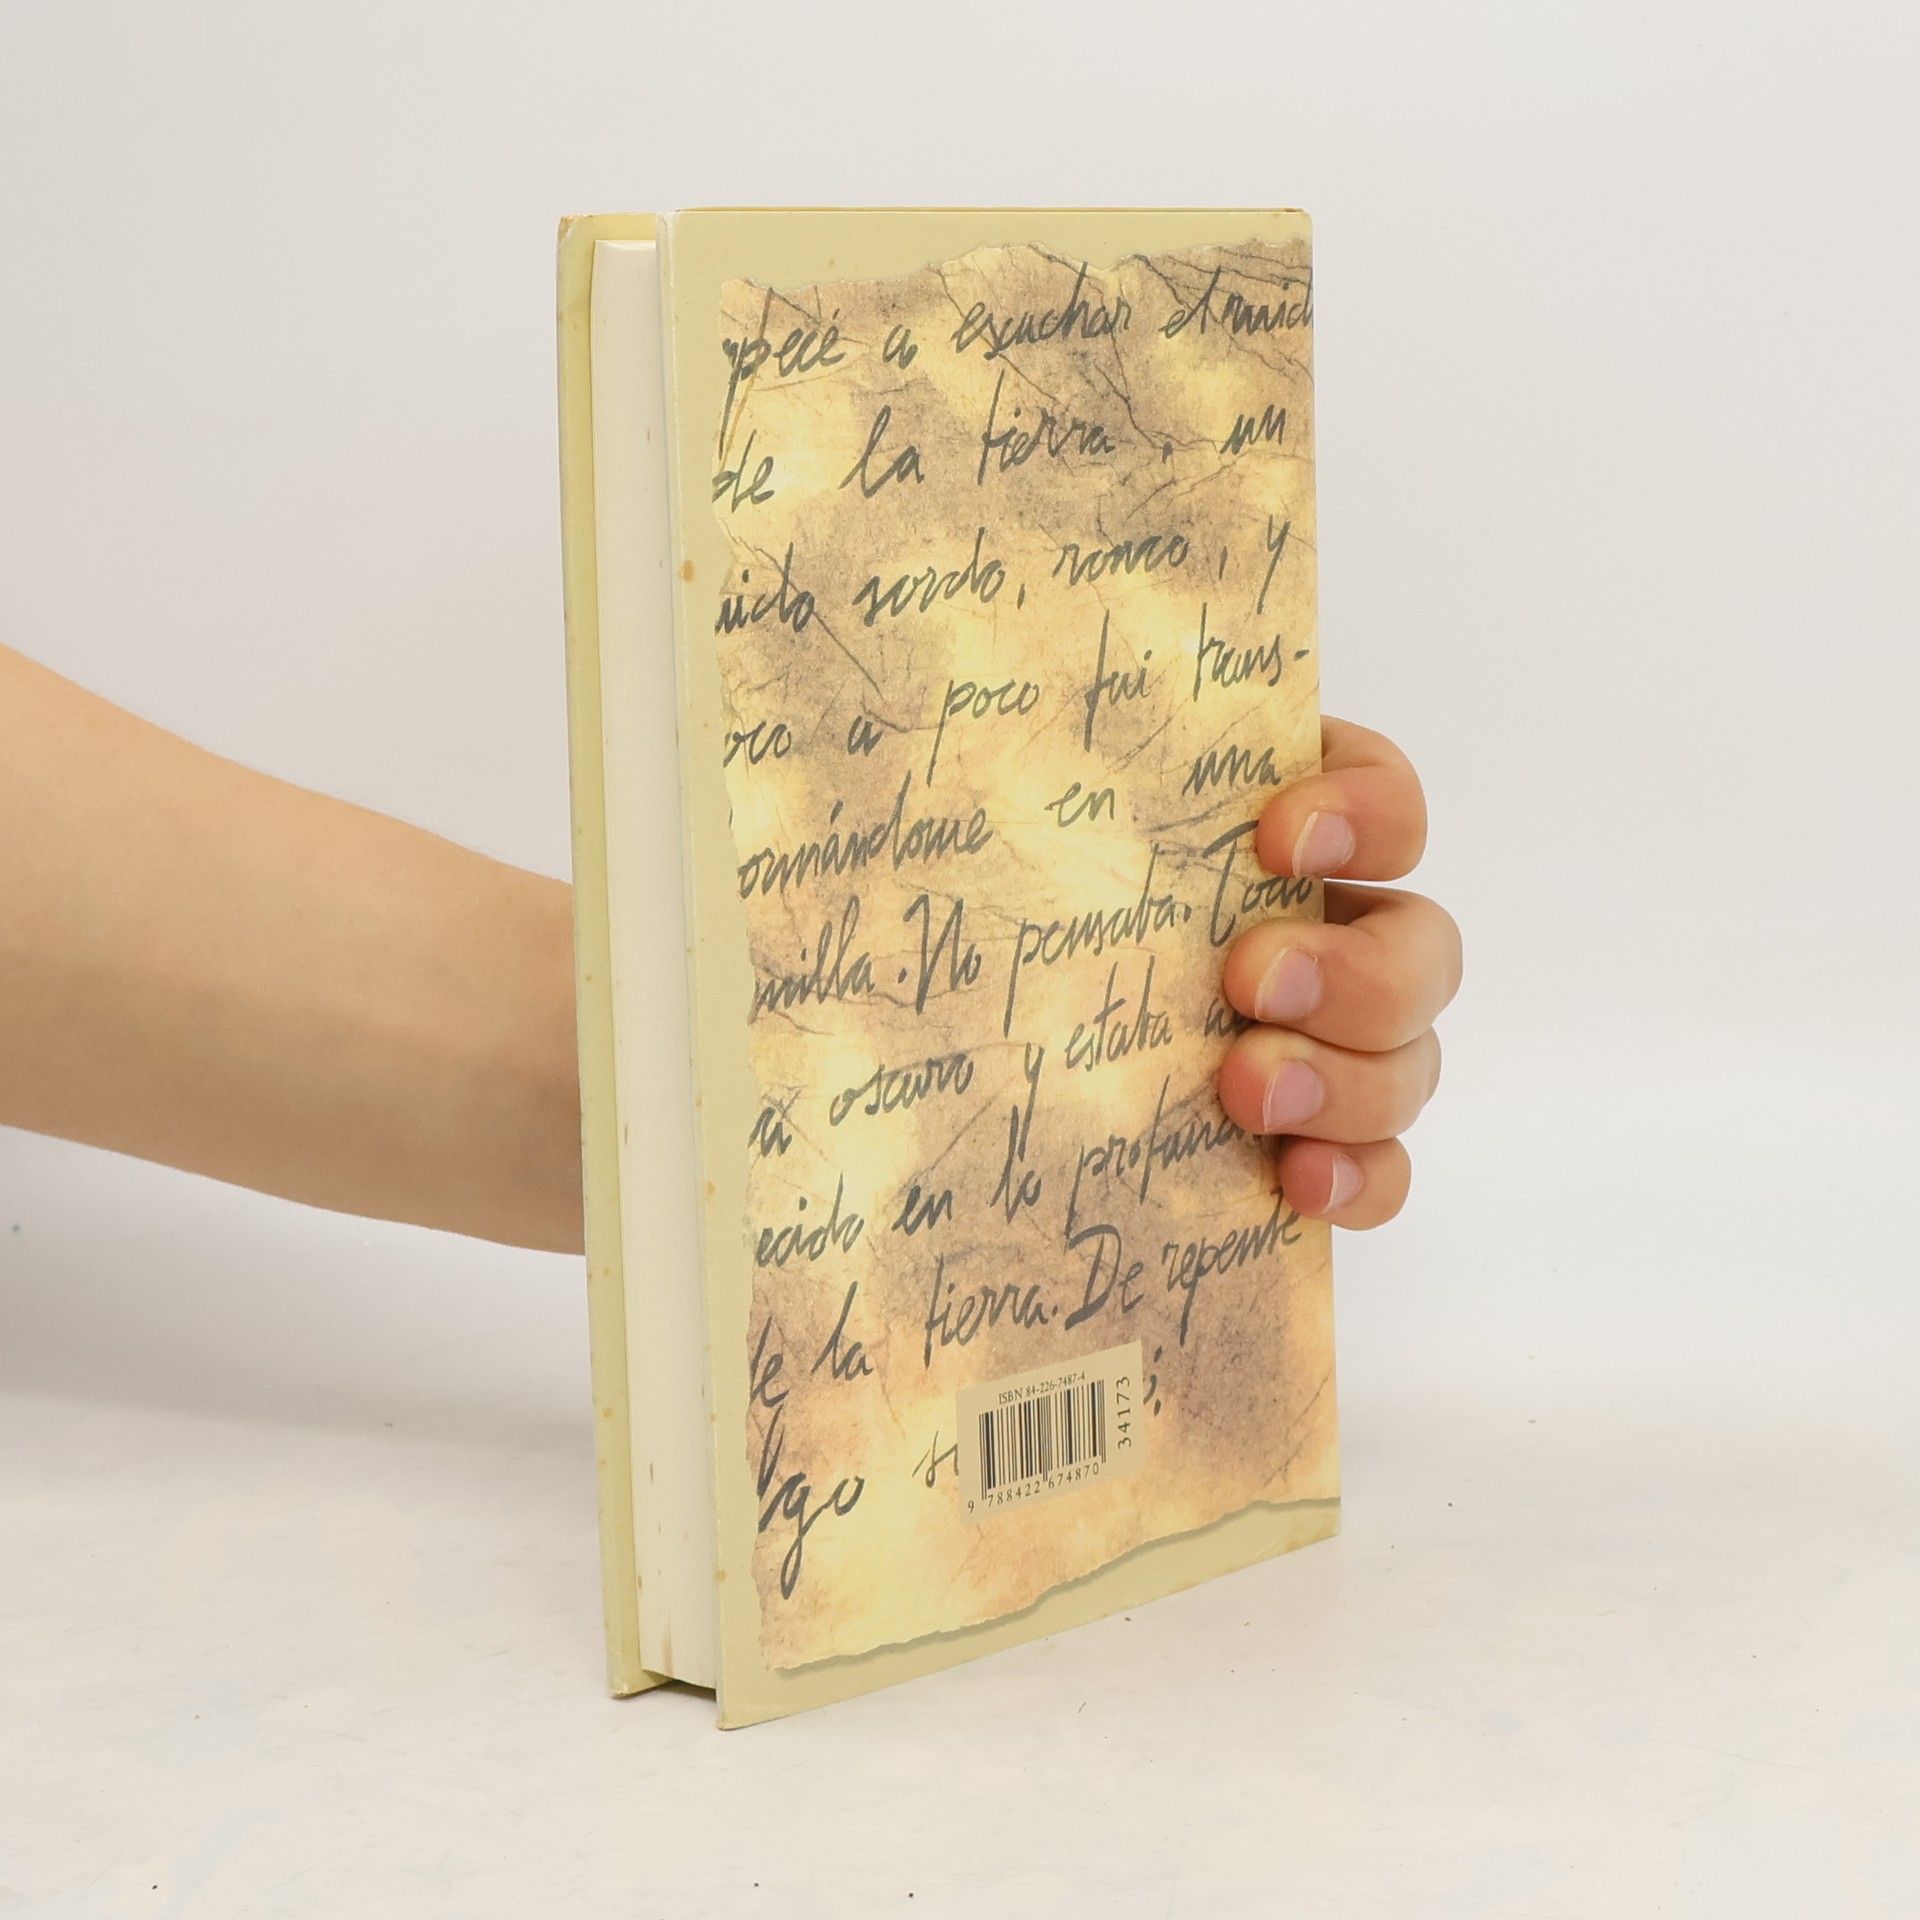 pecé a escuchar el ruid
de la tierra, un
uido sordo, ronco, y
oco a poco fui trans-
ormándome en una
milla. No pensaba. Todo
ra oscuro y estaba a
ecido en lo profund
de la tierra. De repente
lgo s ;
ISBN 84-226-7487-4
34173
9 788422 674870